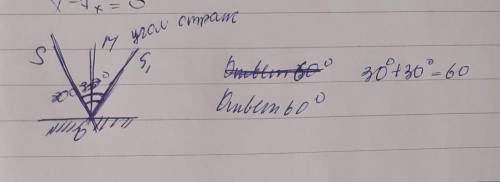 γ - γx = 0
S М угол отраж
S₁
30° 30°
O
Ответ 60° 30° + 30° = 60
Ответ 60°